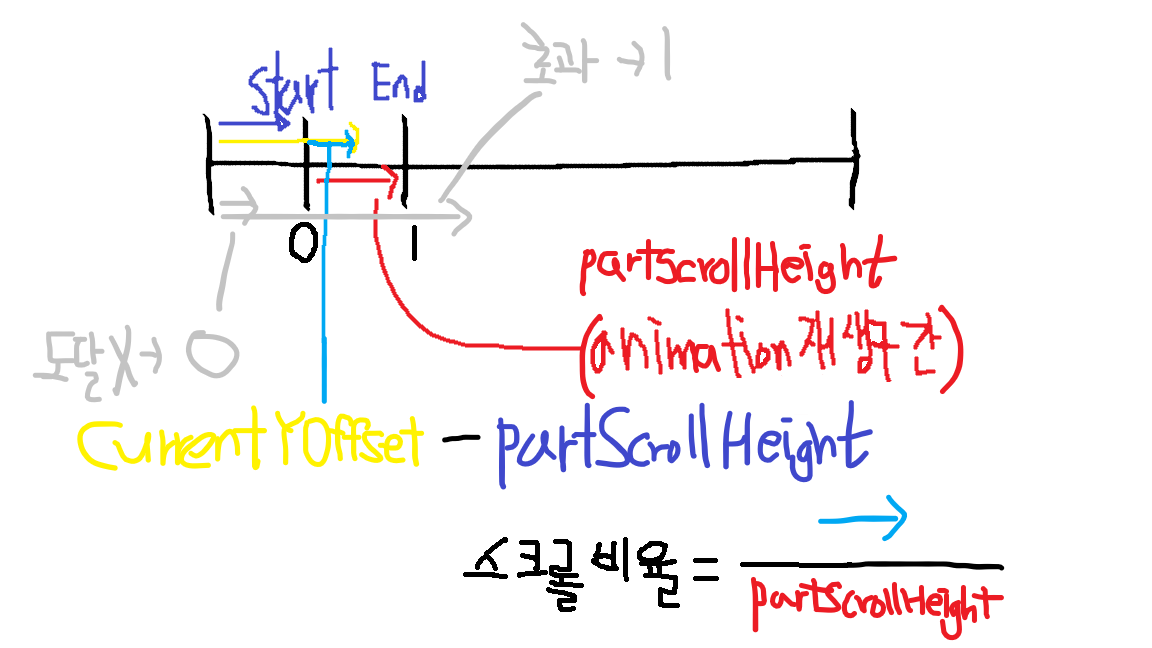 초과→1
Start End
0 1
partScrollHeight
(animation 재생구간)
도달X→0
CurrentYOffset - partScrollHeight
→
스크롤 비율 =
partScrollHeight